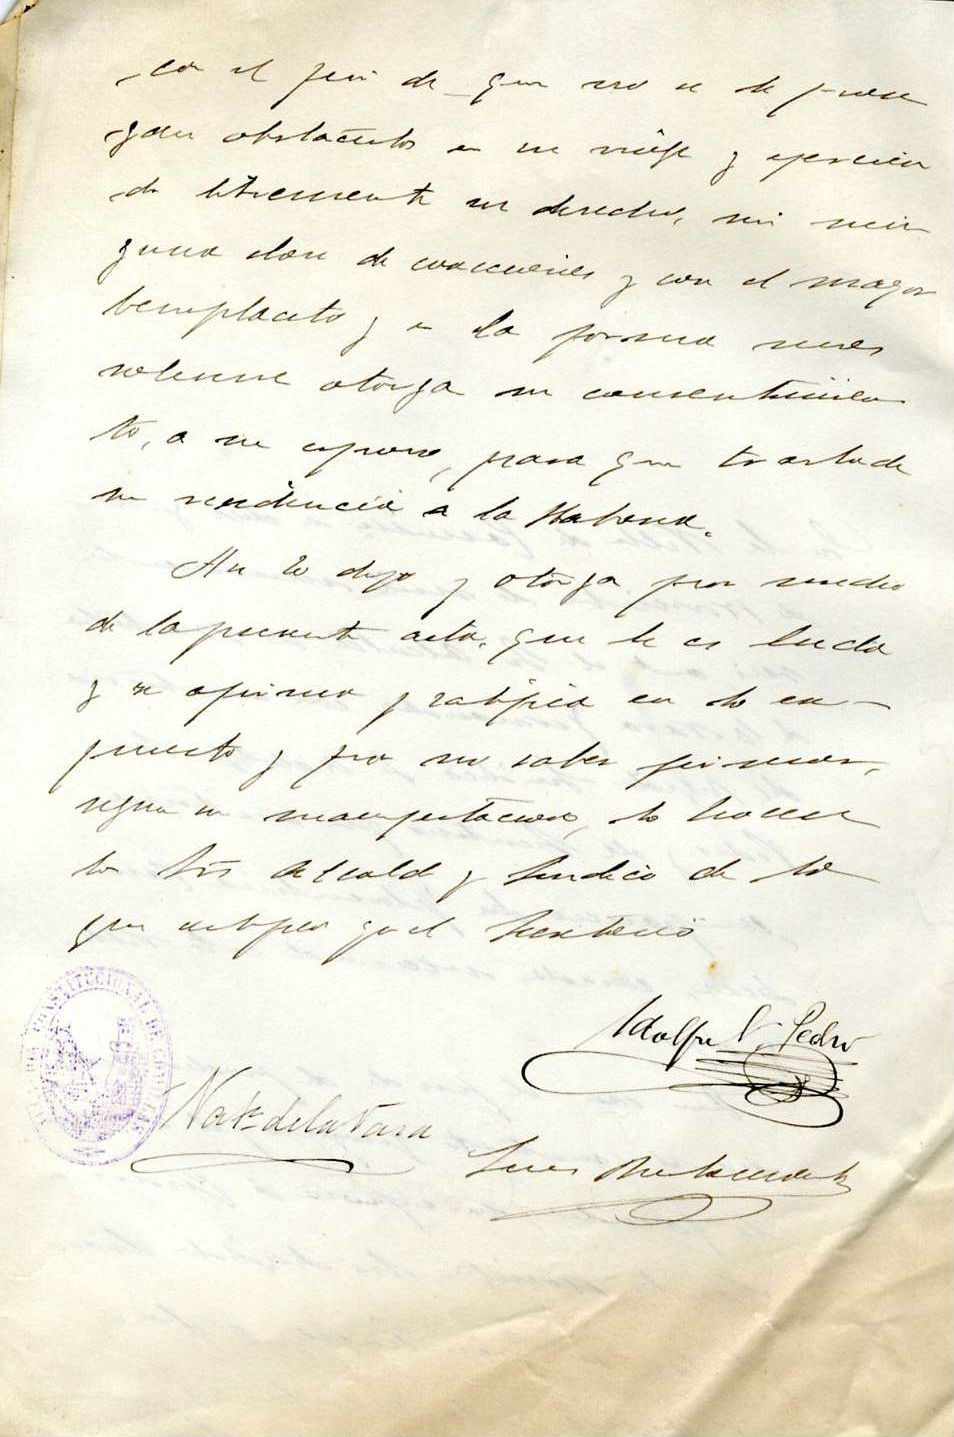 con el fin de que no se le pusie
gan obstaculos en su viaje y ejercien
do libremente su derecho, sin nin
guna clase de coacciones y con el mayor
beneplacito y en la forma mas
solemne otorga su consentimien
to, a su esposo, para que traslade
su residencia a la Habana.
Asi lo dijo y otorga por medio
de la presente acta, que le es leida
y se afirma y ratifica en lo ex-
puesto y por no saber firmar,
segun su manifestacion, lo hacen
los Sres Alcalde y Sindico de lo
que certifico yo el Secretario
Adolfo V. Pedro
CONSTITUCIONAL DE
de la Vara
Luis